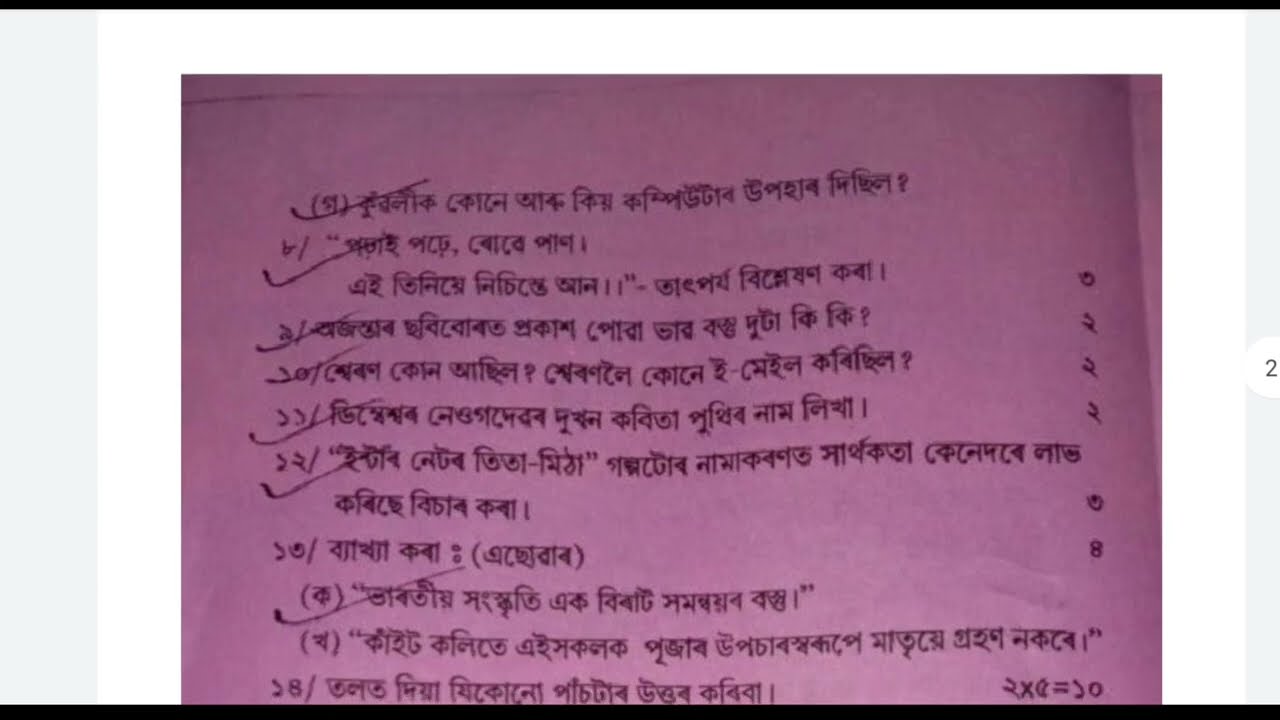 (গ) কুঁৱলীক কোনে আৰু কিয় কম্পিউটাৰ উপহাৰ দিছিল?
৮/ “পঢ়াই পঢ়ে, ৰোৱে পাণ।
এই তিনিয়ে নিচিন্তে আন।।”- তাৎপৰ্য বিশ্লেষণ কৰা। ৩
৯/ অজন্তাৰ ছবিবোৰত প্ৰকাশ পোৱা ভাৱ বস্তু দুটা কি কি? ২
১০/ শ্বেৰণ কোন আছিল? শ্বেৰণলৈ কোনে ই-মেইল কৰিছিল? ২
১১/ ডিম্বেশ্বৰ নেওগদেৱৰ দুখন কবিতা পুথিৰ নাম লিখা। ২
১২/ “ইন্টাৰ নেটৰ তিতা-মিঠা” গল্পটোৰ নামাকৰণত সাৰ্থকতা কেনেদৰে লাভ
কৰিছে বিচাৰ কৰা। ৩
১৩/ ব্যাখ্যা কৰা : (এছোৱাৰ) ৪
(ক) “ভাৰতীয় সংস্কৃতি এক বিৰাট সমন্বয়ৰ বস্তু।”
(খ) “কাঁইট কলিতে এইসকলক পূজাৰ উপচাৰস্বৰূপে মাতৃয়ে গ্ৰহণ নকৰে।”
১৪/ তলত দিয়া যিকোনো পাঁচটাৰ উত্তৰ কৰিবা। ২x৫=১০
2